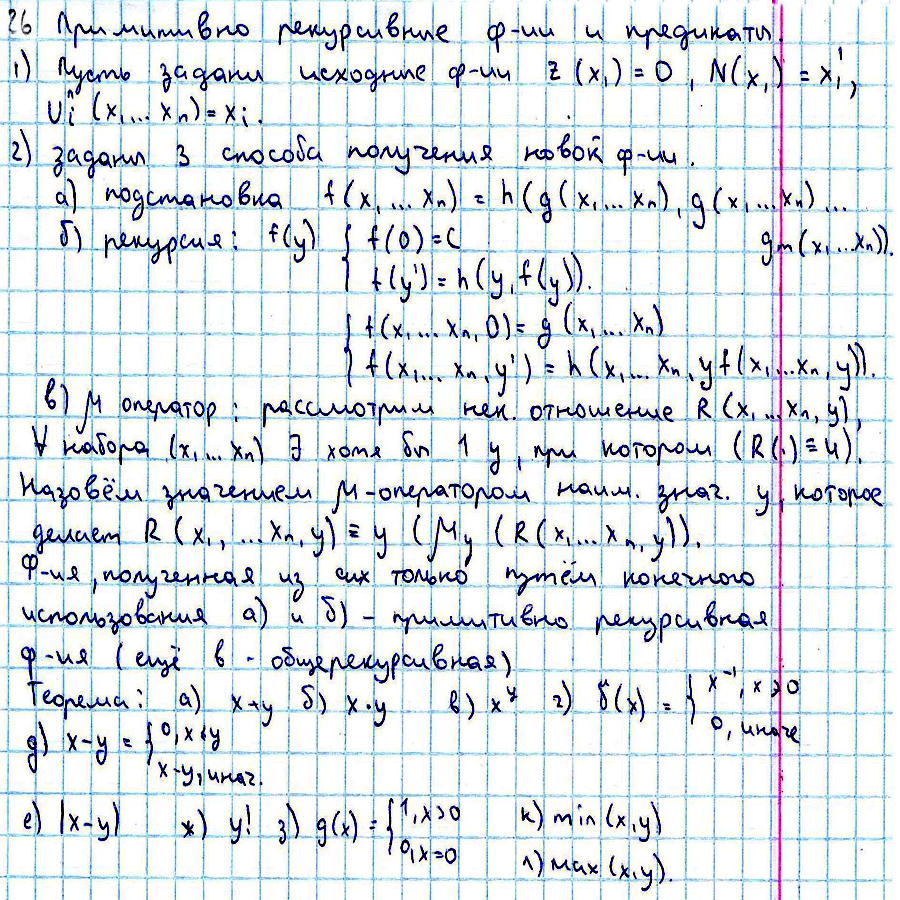 26 Примитивно рекурсивные ф-ии и предикаты.
1) Пусть заданы исходные ф-ии Z(x₁) = 0, N(x₁) = x₁',
Uᵢⁿ(x₁...xₙ) = xᵢ.
2) заданы 3 способа получения новой ф-ии.
а) подстановка f(x₁...xₙ) = h(g(x₁...xₙ), g(x₁...xₙ)...
gₘ(x₁...xₙ)).
б) рекурсия: f(y) { f(0) = C
f(y') = h(y, f(y)).
{ f(x₁...xₙ, 0) = g(x₁...xₙ)
f(x₁...xₙ, y') = h(x₁...xₙ, y f(x₁...xₙ, y)).
в) μ оператор: рассмотрим нек. отношение R(x₁...xₙ, y),
∀ набора (x₁...xₙ) ∃ хотя бы 1 y, при котором (R(.) ≡ И).
Назовём значением μ-оператором наим. знач. y, которое
делает R(x₁, ...xₙ, y) ≡ И (μ_y (R(x₁...xₙ, y)).
Ф-ия, полученная из сих только путём конечного
использования а) и б) - примитивно рекурсивная
ф-ия (ещё в - общерекурсивная)
Теорема: а) x+y б) x·y в) xʸ г) δ(x) = { x-1, x>0
0, иначе
д) x-y = { 0, x<y
x-y, инач.
е) |x-y| ж) y! з) g(x) = { 1, x>0
0, x=0
к) min(x,y)
л) max(x,y).